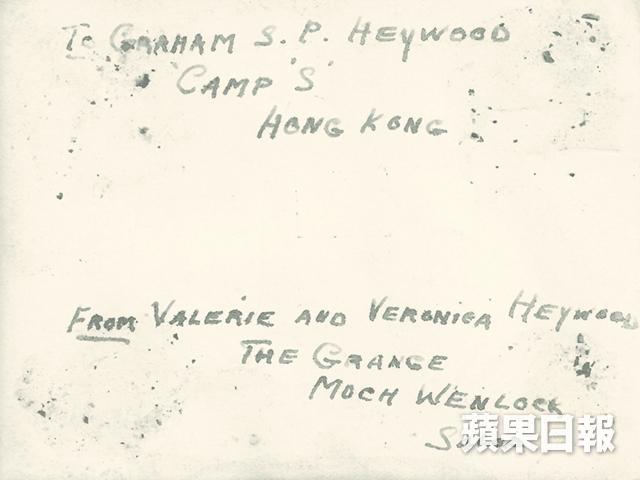 To GRAHAM S. P. HEYWOOD
'CAMP 'S'
HONG KONG
FROM VALERIE AND VERONICA HEYWOOD
THE GRANGE
MOCH WENLOCK
蘋果日報